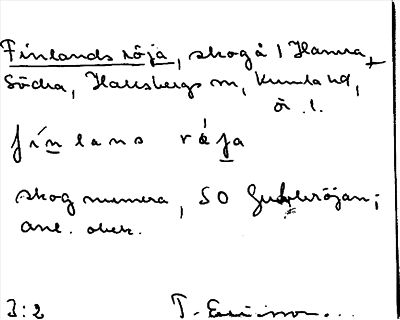 Finlands röja, skog å 1 Hamra,
Södra, Hallsbergs sn, Kumla hd,
Ö. l.
fínlans rǿja
skog numera, SO röjan;
anl. obek.
3:2 T. Ericsson...